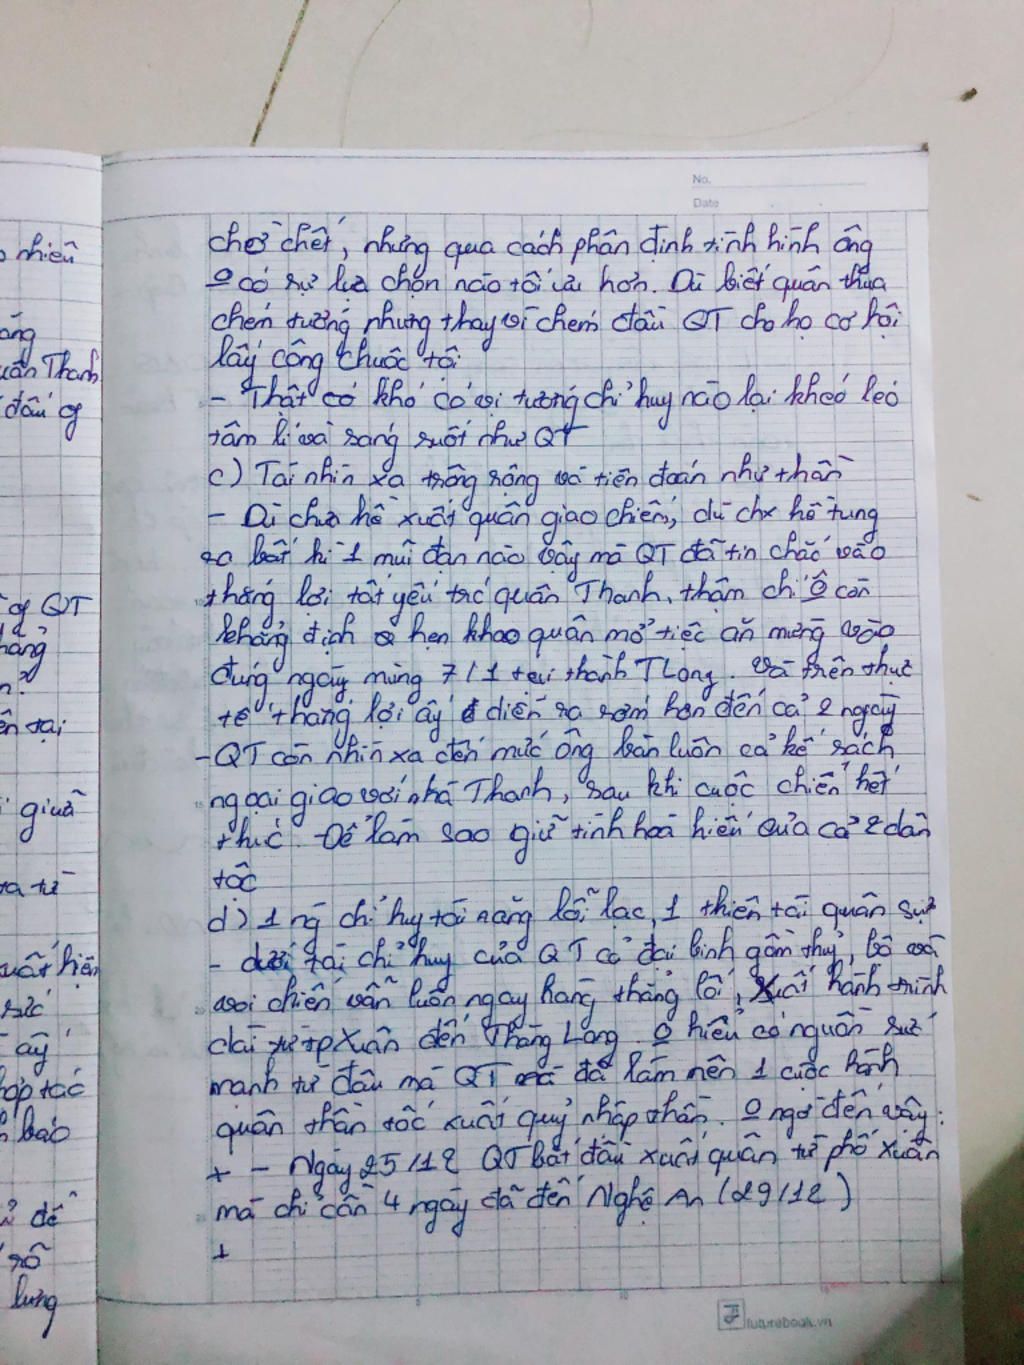 No.
Date
chở chết, nhưng qua cách phân định tình hình ông
o có sự lựa chọn nào tối ưu hơn. Dù biết quân thua
chém tướng nhưng thay vì chém đầu QT cho họ cơ hội
lấy công chuộc tội
- Thật có khó có vị tướng chỉ huy nào lại khéo léo
tâm lí và sáng suốt như QT
c) Tài nhìn xa trông rộng và tiên đoán như thần
- Dù chưa hề xuất quân giao chiến, dù chx hề tung
ra bất kì 1 mũi đạn nào vậy mà QT đã tin chắc vào
thắng lợi tất yếu trc quân Thanh, thậm chí ô còn
khẳng định & hẹn khao quân mở tiệc ăn mừng vào
đúng ngày mùng 7/1 tại thành TLong. Và trên thực
tế thắng lợi ấy diễn ra sớm hơn đến cả 2 ngày
- QT còn nhìn xa đến mức ông bàn luôn cả kế sách
ngoại giao với nhà Thanh, sau khi cuộc chiến kết
thúc. Để làm sao giữ tình hoà hiếu của cả 2 dân
tộc
d) 1 ng chỉ huy tài năng lỗi lạc, 1 thiên tài quân sự
- dưới tài chỉ huy của QT cả đại binh gồm thuỷ, bộ và
voi chiến vẫn luôn ngay hàng thẳng lối, xuất hành trình
dài từ Xuân đến Thăng Long. o hiểu có nguồn sức
mạnh từ đâu mà QT đã làm nên 1 cuộc hành
quân thần tốc xuất quỷ nhập thần. o ngờ đến vậy:
+ - Ngày 25/12 QT bắt đầu xuất quân từ phố Xuân
mà chỉ cần 4 ngày đã đến Nghệ An (29/12)
+
futurebook.vn
nhiều
uân Thanh
đầu of
of QT
giuã
ra từ
uất hiện
sức
ấy
hợp tác
báo
để
rõ
lưng